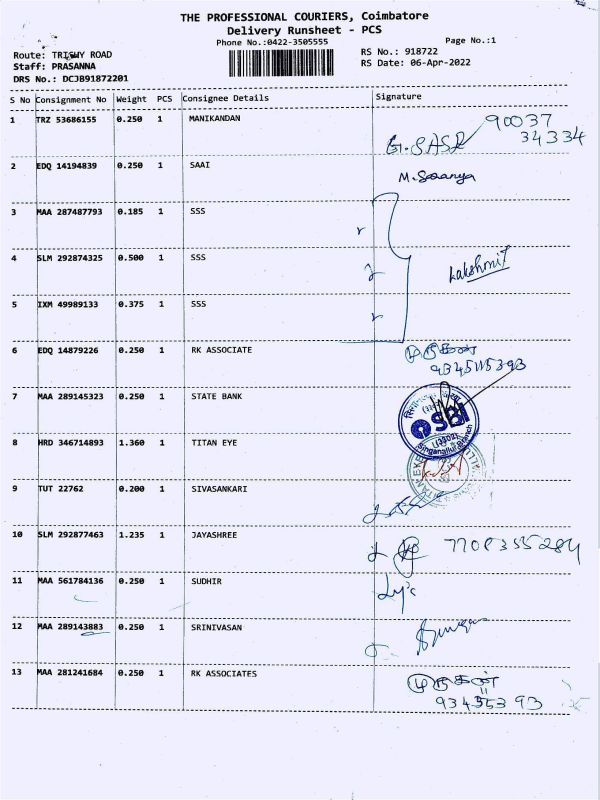 THE PROFESSIONAL COURIERS, Coimbatore
Delivery Runsheet - PCS
Phone No.:0422-3505555
Page No.:1
Route: TRICHY ROAD
RS No.: 918722
Staff: PRASANNA
RS Date: 06-Apr-2022
DRS No.: DCJB91872201
S No Consignment No Weight PCS Consignee Details Signature
1 TRZ 53686155 0.250 1 MANIKANDAN 90037
34334
2 EDQ 14194839 0.250 1 SAAI M.Saranya
3 MAA 287487793 0.185 1 SSS
4 SLM 292874325 0.500 1 SSS Lakshmi
5 IXM 49989133 0.375 1 SSS
6 EDQ 14879226 0.250 1 RK ASSOCIATE முருகன்
7 MAA 289145323 0.250 1 STATE BANK SBI
Singanallur Branch
8 HRD 346714893 1.360 1 TITAN EYE
9 TUT 22762 0.200 1 SIVASANKARI
10 SLM 292877463 1.235 1 JAYASHREE
11 MAA 561784136 0.250 1 SUDHIR
12 MAA 289143883 0.250 1 SRINIVASAN
13 MAA 281241684 0.250 1 RK ASSOCIATES முருகன்